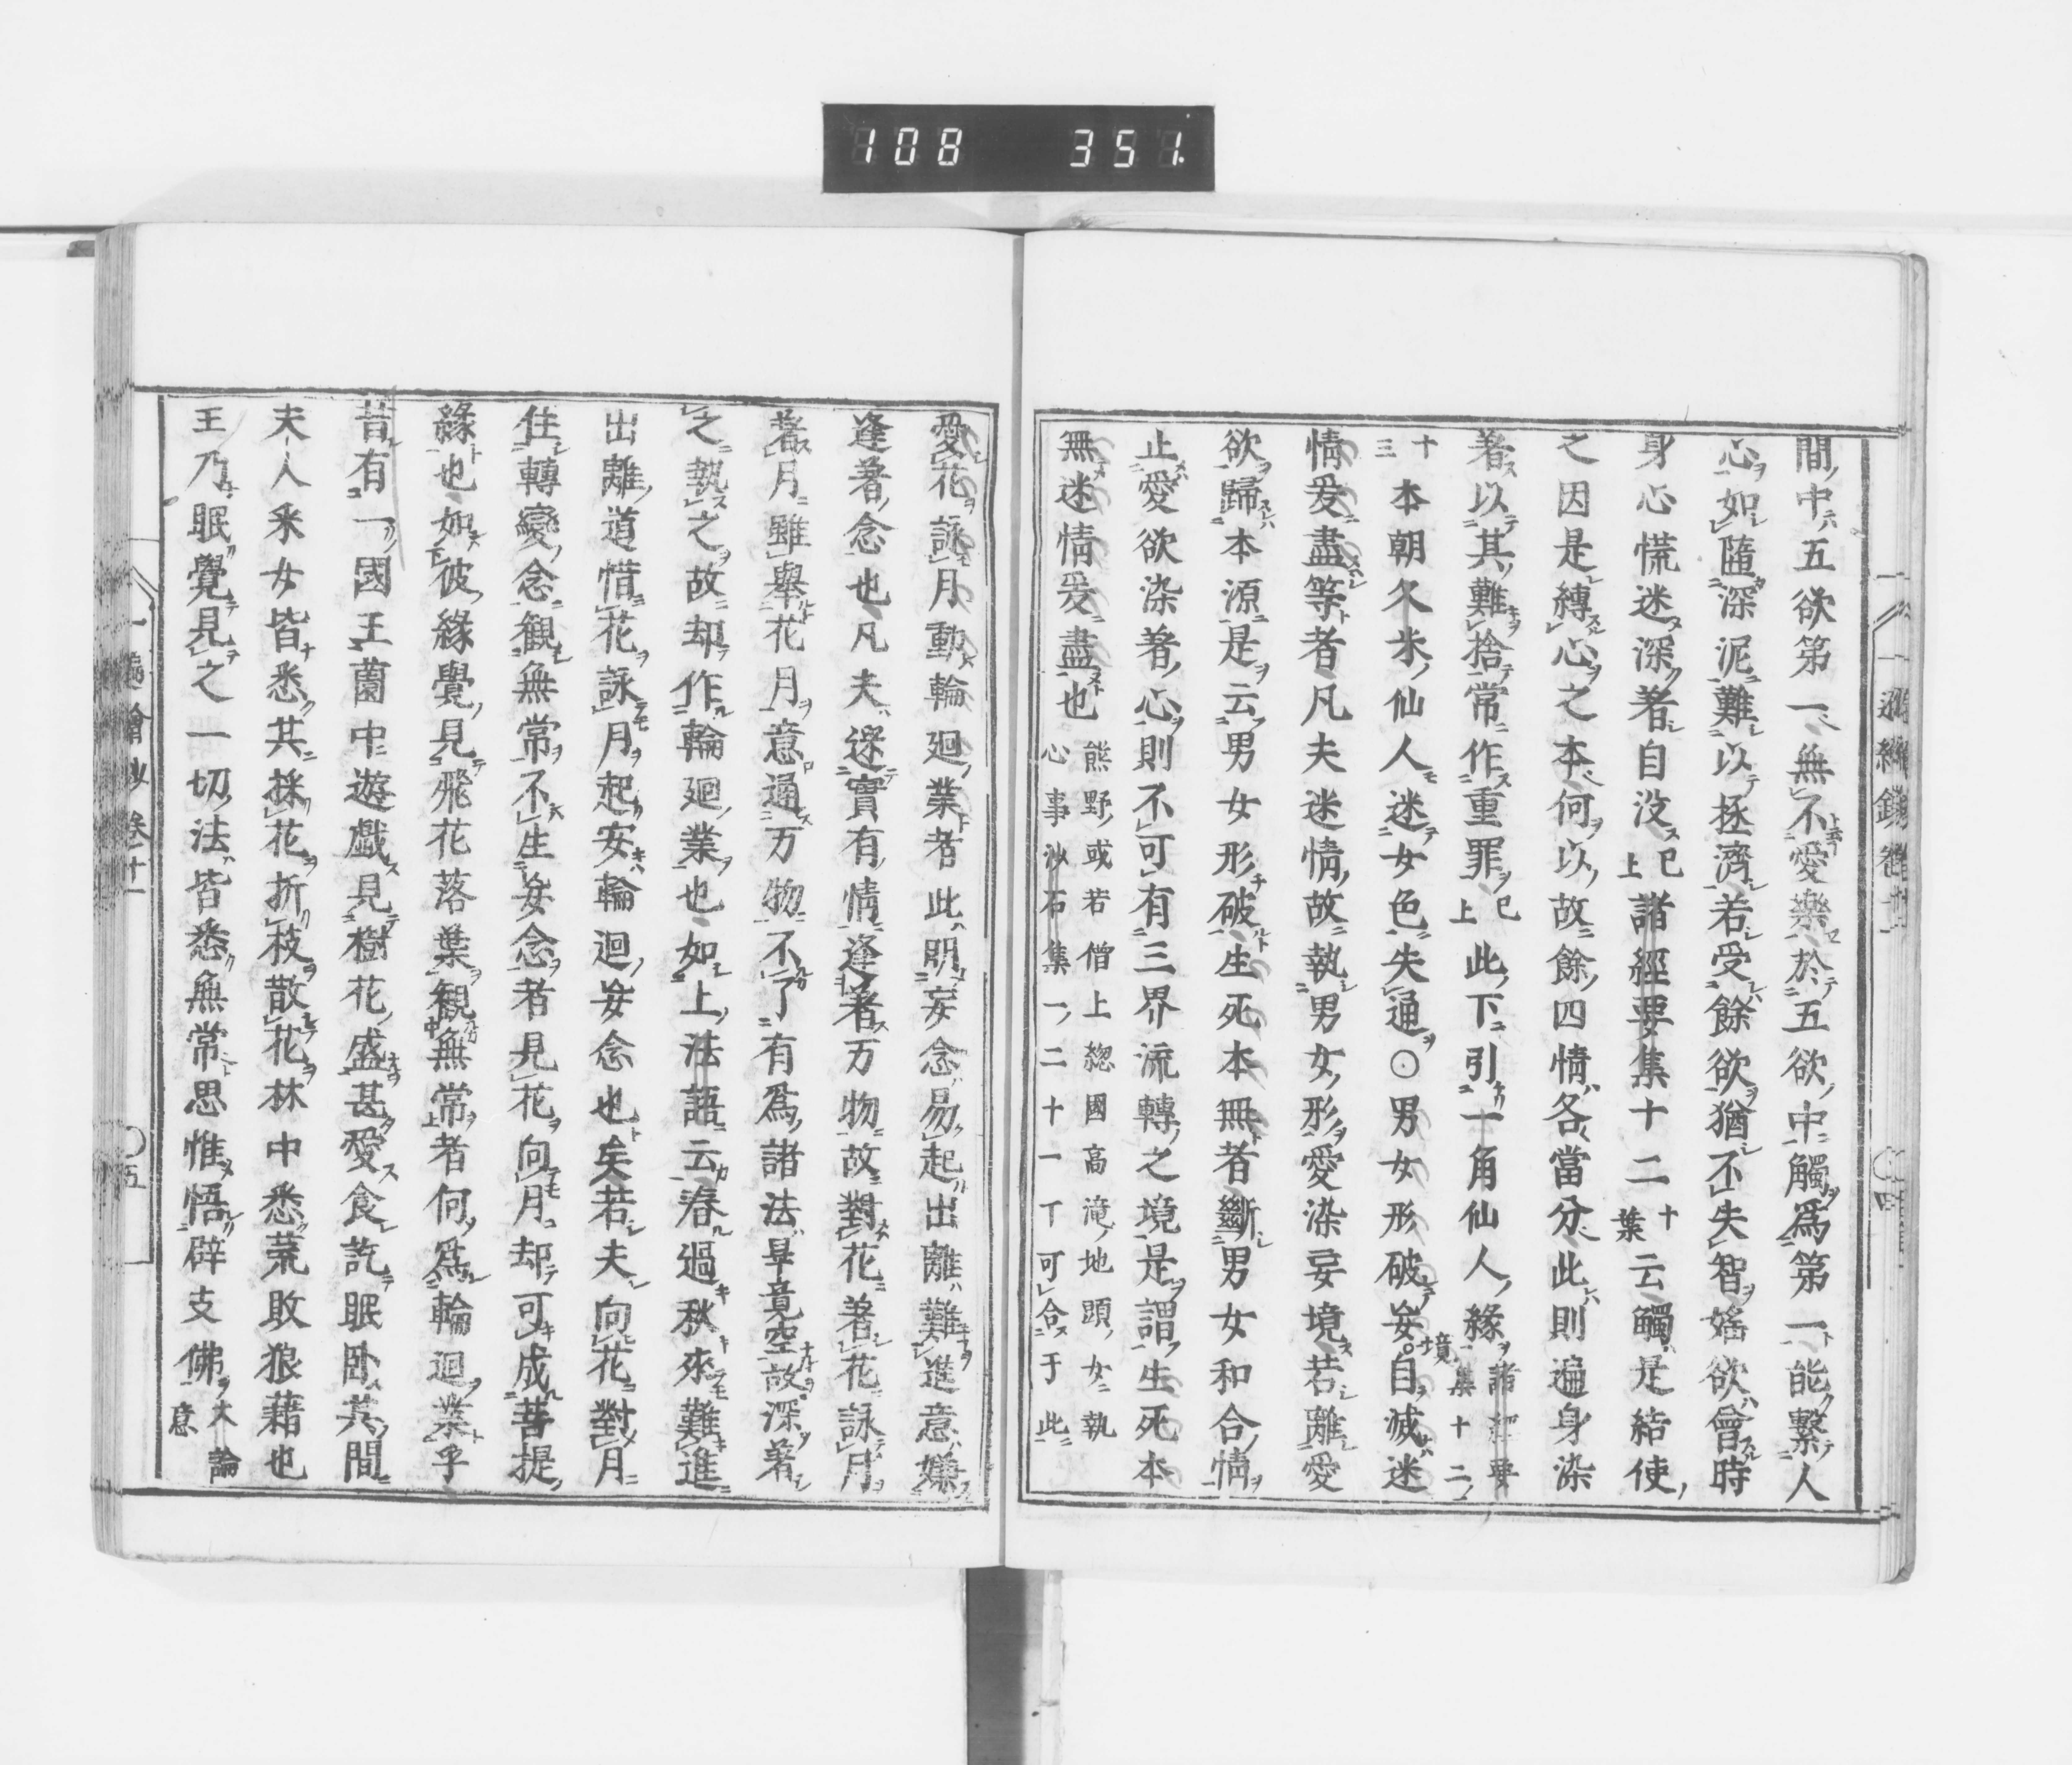 108 351
間中五欲第一無不愛樂於五欲中觸爲第一能繫人
心如墮深泥難以拯濟若受餘欲猶不失智婬欲會時
身心慌迷深著自没已上諸經要集十二十葉云觸是結使
之因是縛心之本何以故餘四情各當分此則遍身染
著以其難捨常作重罪已上此下引一角仙人緣諸經要集十二
十三本朝久米仙人迷女色失通○男女形破妄境自滅迷
情爰盡等者凡夫迷情故執男女形愛染妄境若離愛
欲歸本源是云男女形破生死本無者斷男女和合情
止愛欲染著心則不可有三界流轉之境是謂生死本
無迷情爰盡也熊野或若僧上總國高滝地頭女執
心事沙石集一二十一丁可合于此
愛花詠月動輪廻業者此明妄念易起出離難進意嫌
逢著念也凡夫迷實有情逢著万物故對花著花詠月
著月雖擧花月意通万物不了有爲諸法畢竟空故深著
之執之故却作輪廻業也如上法語云春過秋來難進
出離道惜花詠月起安輪廻妄念也矣若夫向花對月
住轉變念觀無常不生妄念者見花向月却可成菩提
緣也如彼緣覺見飛花落葉觀無常者何爲輪廻業乎
昔有一國王薗中遊戲見樹花盛甚愛食訖眠臥其間
夫人釆女皆悉共採花折枝散花林中悉荒敗狼藉也
王乃眠覺見之一切法皆悉無常思惟悟辟支佛大論意
一遍會抄卷十一 ○五